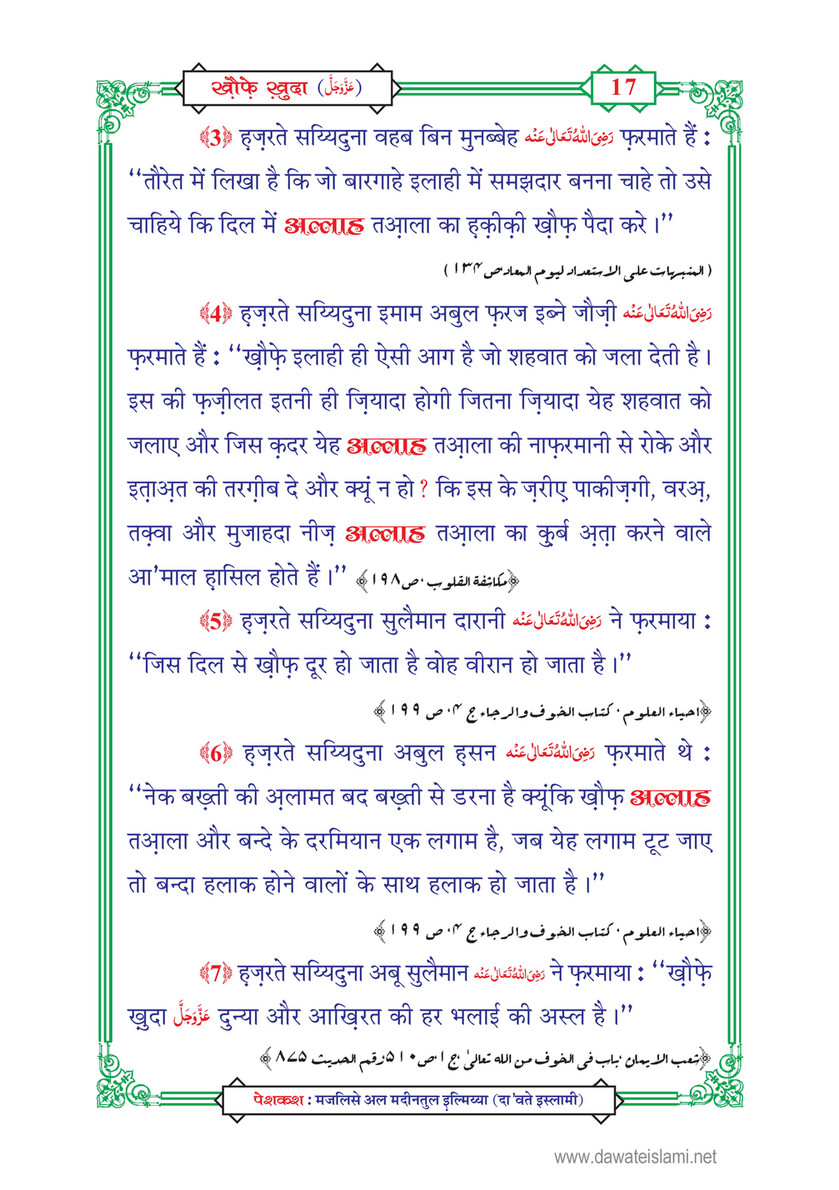 ख़ौफ़े ख़ुदा (عَزَّوَجَلَّ)
17
﴾3﴿ हज़रते सय्यिदुना वहब बिन मुनब्बेह رَضِىَ اللّٰهُ تَعَالٰى عَنْه फ़रमाते हैं :
‘‘तौरेत में लिखा है कि जो बारगाहे इलाही में समझदार बनना चाहे तो उसे
चाहिये कि दिल में अल्लाह तआ़ला का हक़ीक़ी ख़ौफ़ पैदा करे ।’’
(المنبہات علی الاستعداد لیوم المعاد ص ۱۳۴)
﴾4﴿ हज़रते सय्यिदुना इमाम अबुल फ़रज इब्ने जौज़ी رَضِىَ اللّٰهُ تَعَالٰى عَنْه
फ़रमाते हैं : ‘‘ख़ौफ़े इलाही ही ऐसी आग है जो शहवात को जला देती है ।
इस की फ़ज़ीलत इतनी ही ज़ियादा होगी जितना ज़ियादा येह शहवात को
जलाए और जिस क़दर येह अल्लाह तआ़ला की नाफ़रमानी से रोके और
इत़ाअ़त की तरग़ीब दे और क्यूं न हो ? कि इस के ज़रीए़ पाकीज़गी, वरअ़,
तक़्वा और मुजाहदा नीज़ अल्लाह तआ़ला का क़ुर्ब अ़त़ा करने वाले
आ'माल ह़ासिल होते हैं ।’’ ﴿مکاشفۃ القلوب، ص ۱۹۸﴾
﴾5﴿ हज़रते सय्यिदुना सुलैमान दारानी رَضِىَ اللّٰهُ تَعَالٰى عَنْه ने फ़रमाया :
‘‘जिस दिल से ख़ौफ़ दूर हो जाता है वोह वीरान हो जाता है ।’’
﴿احیاء العلوم، کتاب الخوف والرجاء ج ۴، ص ۱۹۹﴾
﴾6﴿ हज़रते सय्यिदुना अबुल ह़सन رَضِىَ اللّٰهُ تَعَالٰى عَنْه फ़रमाते थे :
‘‘नेक बख़्ती की अ़लामत बद बख़्ती से डरना है क्यूंकि ख़ौफ़ अल्लाह
तआ़ला और बन्दे के दरमियान एक लगाम है, जब येह लगाम टूट जाए
तो बन्दा हलाक होने वालों के साथ हलाक हो जाता है ।’’
﴿احیاء العلوم، کتاب الخوف والرجاء ج ۴، ص ۱۹۹﴾
﴾7﴿ हज़रते सय्यिदुना अबू सुलैमान رَضِىَ اللّٰهُ تَعَالٰى عَنْه ने फ़रमाया : ‘‘ख़ौफ़े
ख़ुदा عَزَّوَجَلَّ दुन्या और आख़िरत की हर भलाई की अस्ल है ।’’
﴿شعب الایمان، باب فی الخوف من الله تعالیٰ، ج ۱، ص ۵۱۰، رقم الحدیث ۸۷۵﴾
पेशकश : मजलिसे अल मदीनतुल इ़ल्मिय्या (दा'वते इस्लामी)
www.dawateislami.net